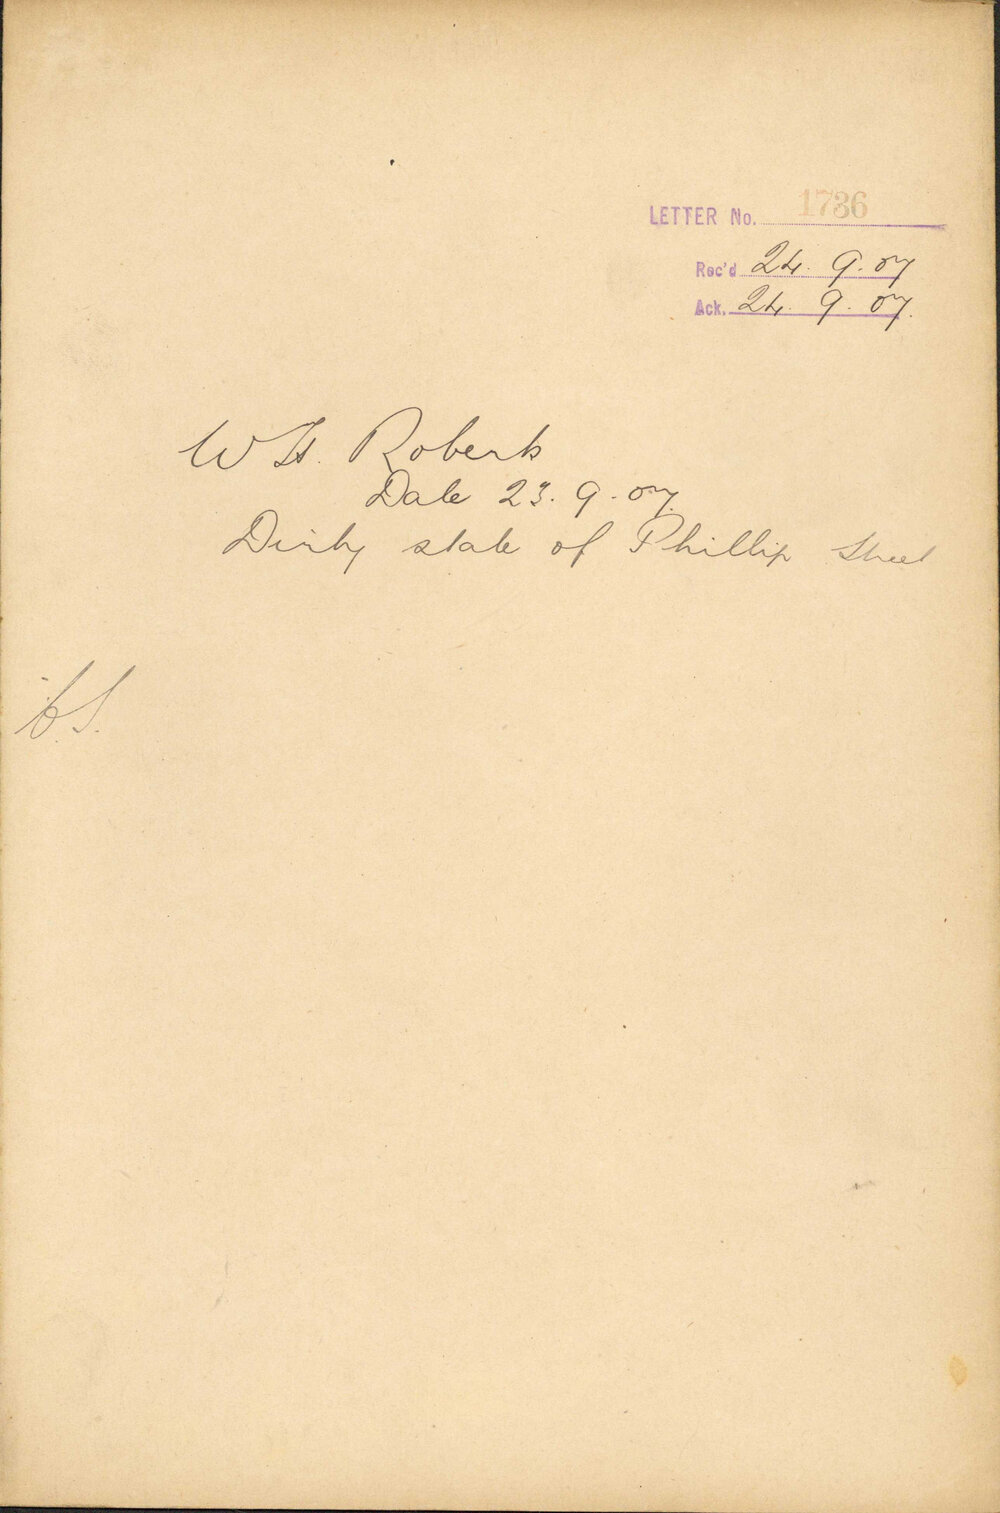 LETTER No. 1736
Rec'd 24. 9. 07
Ack. 24. 9. 07.
W H. Roberts
Date 23. 9. 07.
Dirty state of Phillip Street